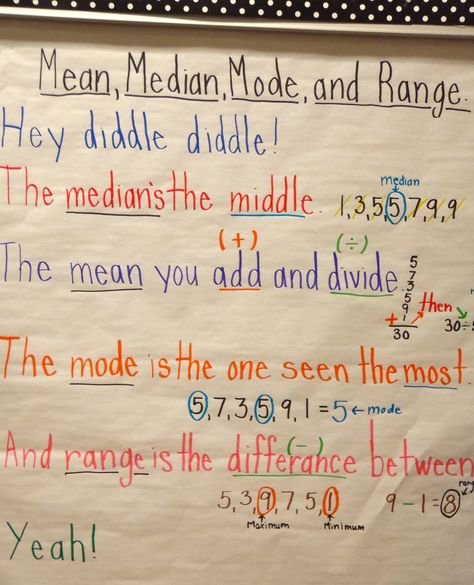 Mean, Median, Mode, and Range.
Hey diddle diddle!
median
The median's the middle. 1,3,5,5,7,9,9
(+) (÷)
The mean you add and divide.
5
7
3
5
9
+1
30
then
30÷
The mode is the one seen the most.
5,7,3,5,9,1=5 ← mode
(−)
And range is the differance between
5,3,9,7,5,1 9-1=8
Maximum Minimum
Yeah!